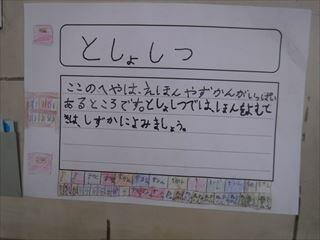 としょしつ
ここのへやは、えほんやずかんがいっぱい
あるところです。としょしつでは、ほんをよむと
きは、しずかによみましょう。